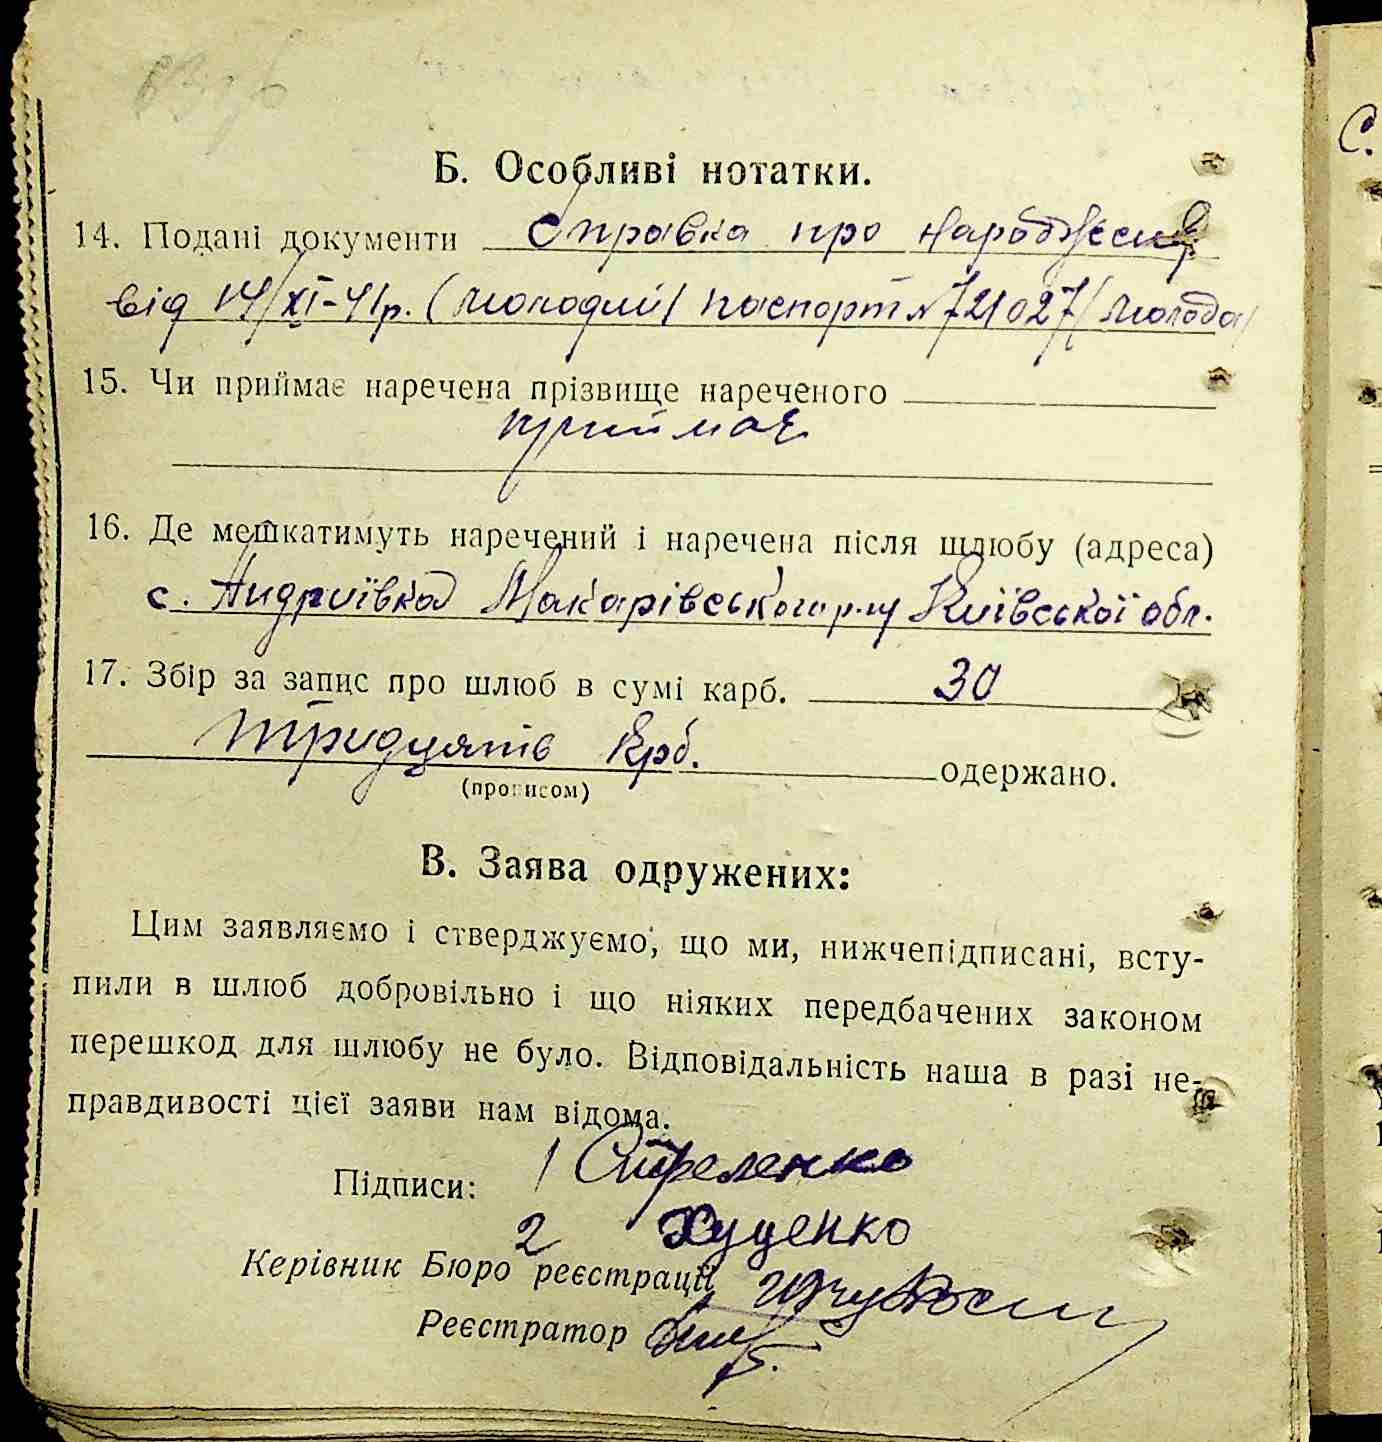 Б. Особливі нотатки.
14. Подані документи справка про народження
від 14/XI-41р. (молодий) паспорт № 721027 /молода/
15. Чи приймає наречена прізвище нареченого
приймає
16. Де мешкатимуть наречений і наречена після шлюбу (адреса)
с. Андріївка Макарівського р-ну Київської обл.
17. Збір за запис про шлюб в сумі карб. 30
тридцять крб. одержано.
(прописом)
В. Заява одружених:
Цим заявляємо і стверджуємо, що ми, нижчепідписані, всту-
пили в шлюб добровільно і що ніяких передбачених законом
перешкод для шлюбу не було. Відповідальність наша в разі не-
правдивості цієї заяви нам відома.
Підписи: 1 Стреленко
2 Хуценко
Керівник Бюро реєстрації
Реєстратор
С.